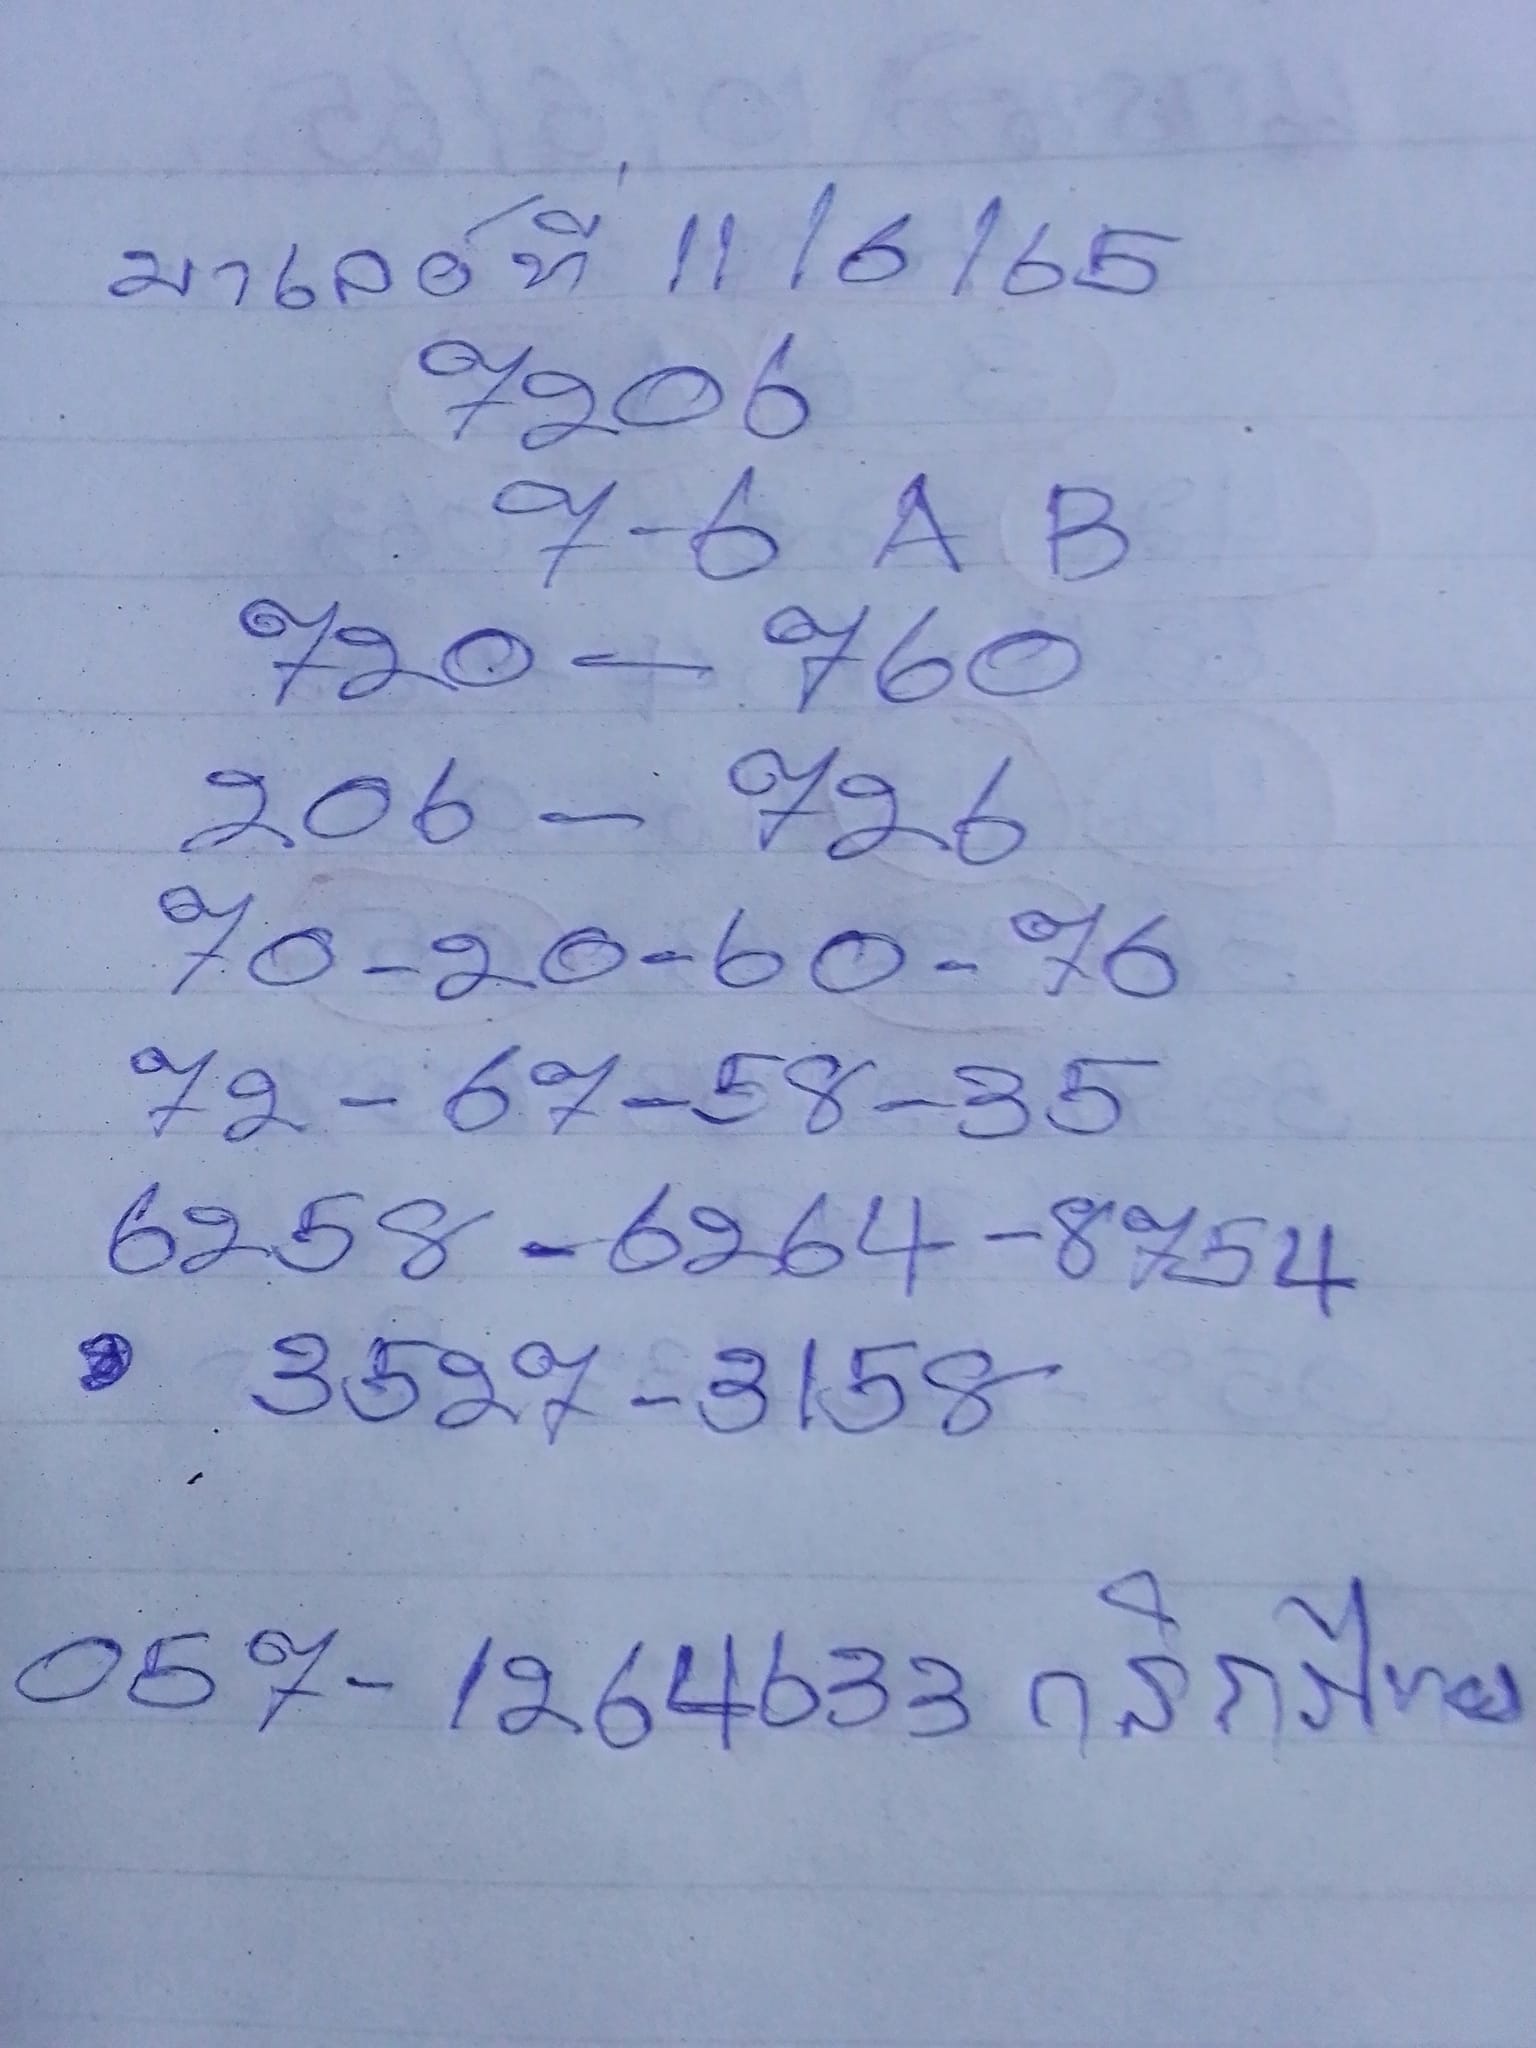 มาเลย์ที่ 11/6/65
7206
7-6 A B
720 — 760
206 - 726
70-20-60-76
72-67-58-35
6258-6264-8754
3527-3158
057-1264633 กสิกรไทย